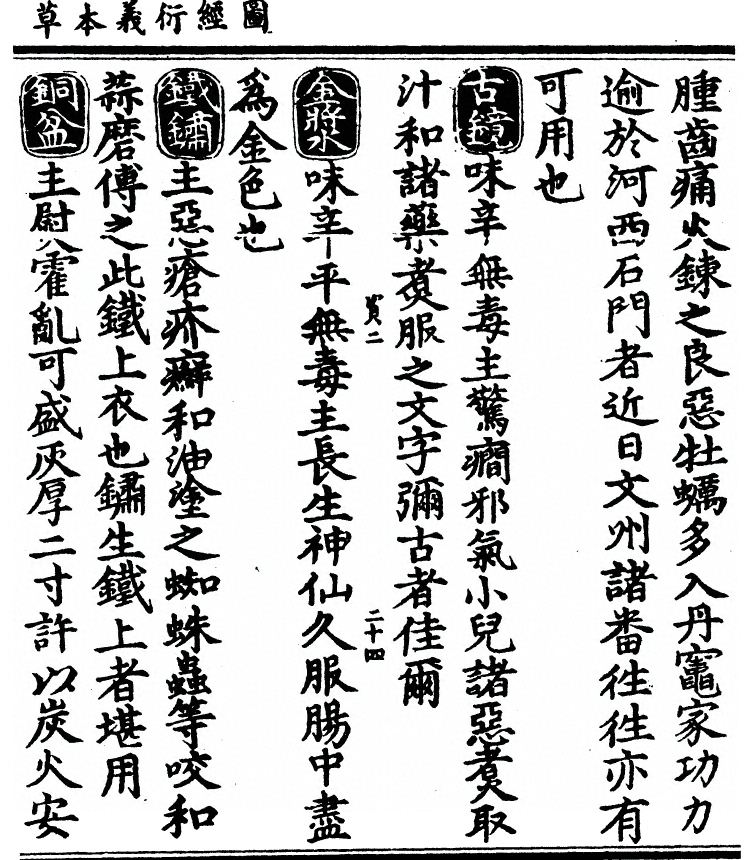 圖經衍義本草
腫齒痛火鍊之良惡牡蠣多入丹竈家功力
逾於河西石門者近日文州諸番徃徃亦有
可用也
古鏡味辛無毒主驚癇邪氣小兒諸惡煑取
汁和諸藥煑服之文字彌古者佳爾
金漿味辛平無毒主長生神仙久服腸中盡
卷二
二十四
為金色也
鐵鏽主惡瘡疥癬和油塗之蜘蛛蟲等咬和
蒜磨傅之此鐵上衣也鏽生鐵上者堪用
銅盆主熨霍亂可盛灰厚二寸許以炭火安